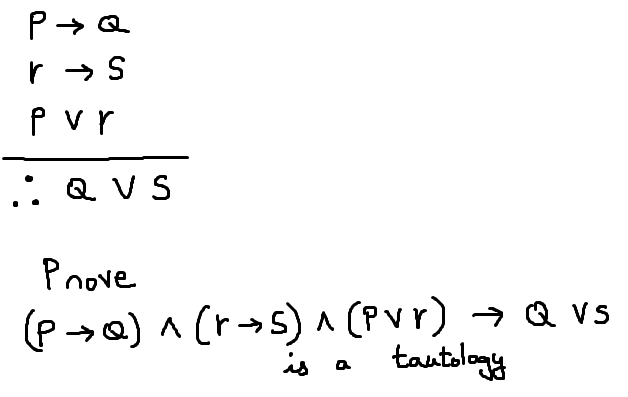 P → Q
r → S
P V r
∴ Q V S
Prove
(P → Q) ∧ (r → S) ∧ (P V r) → Q V S
is a tautology